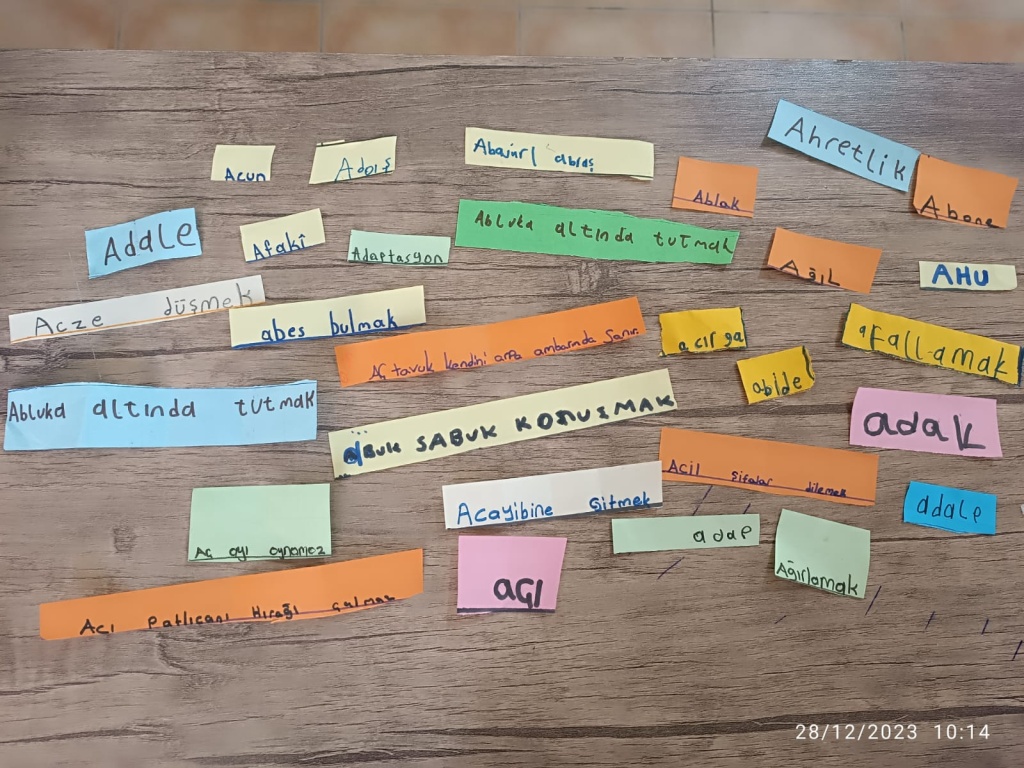 Acun
Adaış
Abajurl abraş
Ablak
Ahretlik
Abone
Adale
Afakî
Adaptasyon
Abluka altında tutmak
Ağıl
AHU
Acze düşmek
abes bulmak
Aç tavuk kendini arpa ambarında sanır.
acırga
abide
afallamak
Abluka altında tutmak
abuk SABUK KONUŞMAK
adak
Acil şifalar dilemek
Acayibine gitmek
adale
Aç ayı oynamaz
adap
Ağırlamak
açı
Acı patlıcanı kırağı çalmaz
28/12/2023 10:14